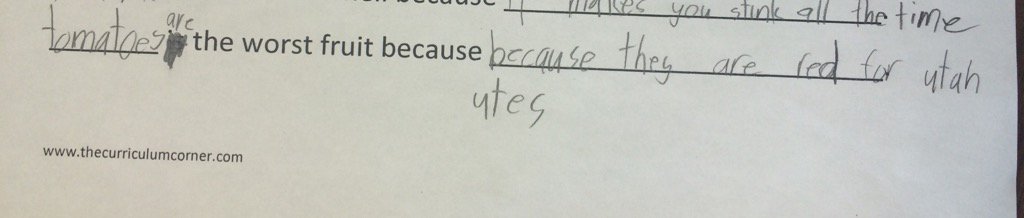 it makes you stink all the time
are
tomatoes the worst fruit because because they are red for utah
utes
www.thecurriculumcorner.com